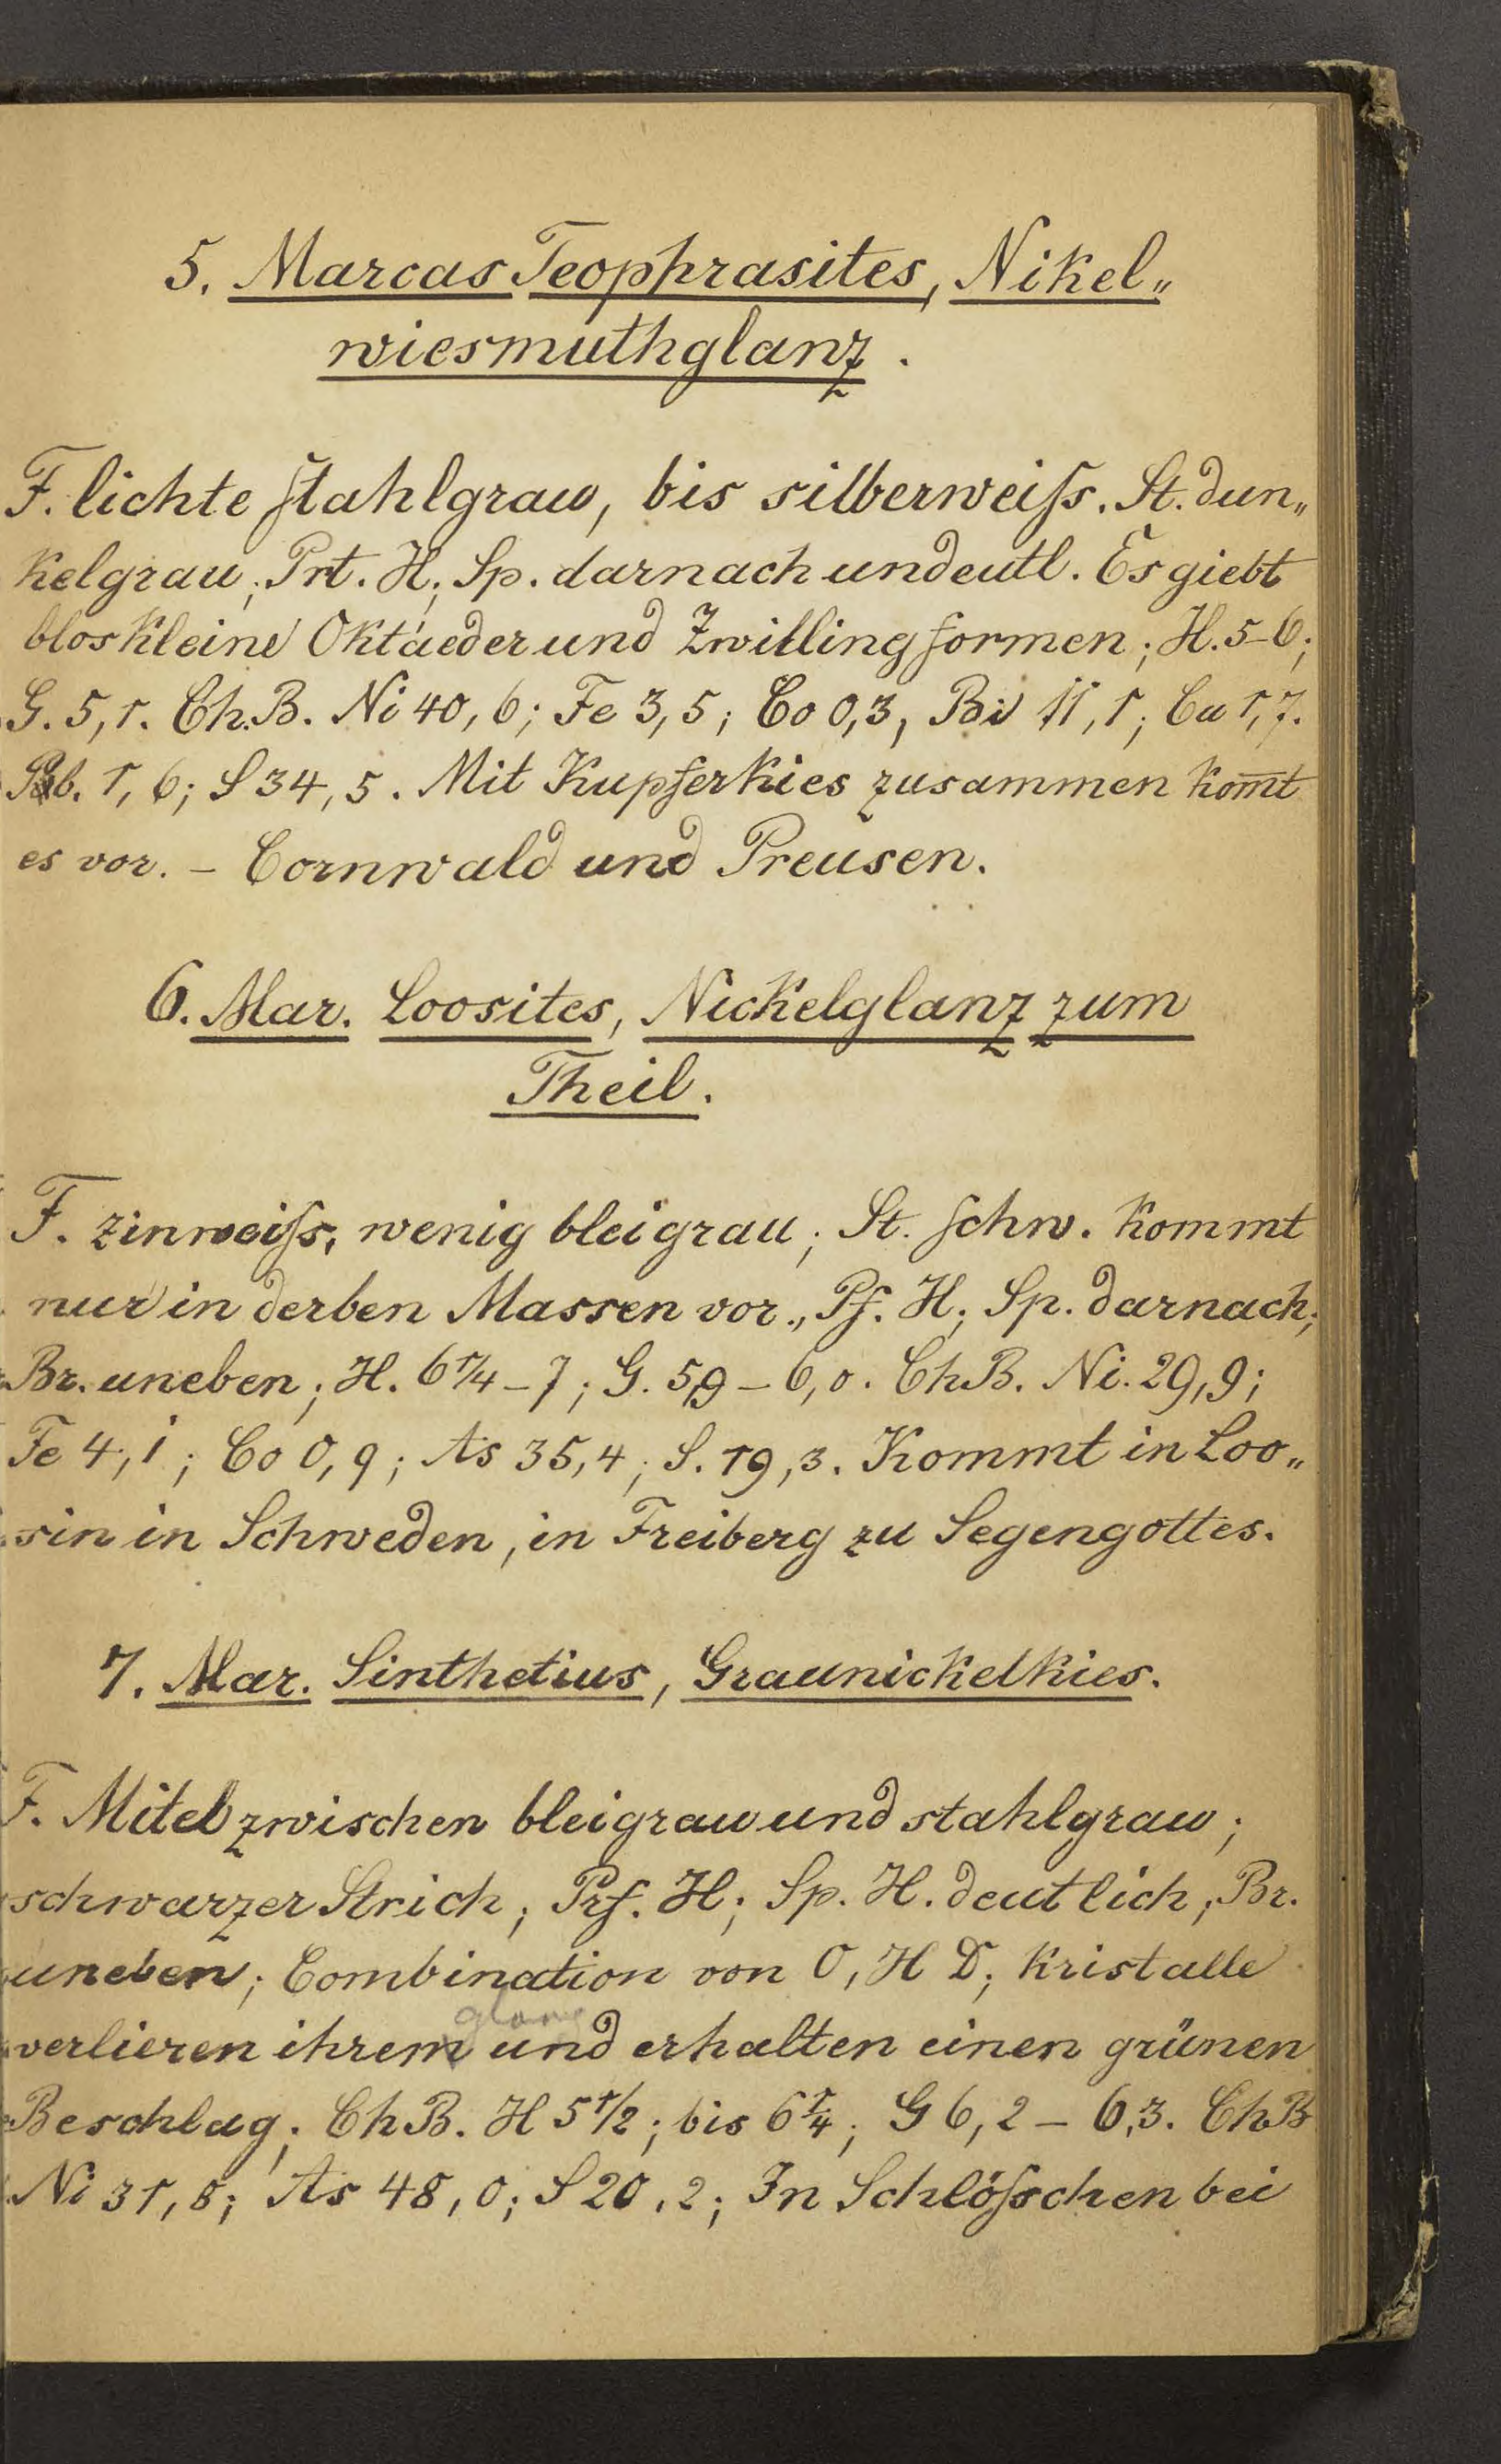 5. Marcas Teophrasites, Nikel„
wiesmuthglanz.
F. lichte stahlgrau, bis silberweiss. St. dun„
kelgrau; Prt. H; Sp. darnach undeutl. Es giebt
blos kleine Oktaeder und Zwillingformen; H. 5–6;
G. 5,1. Ch.B. Ni 40,6; Fe 3,5; Co 0,3, Bi 11,1; Cu 1,7.
Pb. 1,6; S 34,5. Mit Kupferkies zusammen kom̅t
es vor. – Cornwald und Preusen.
6. Mar. Loosites, Nickelglanz zum
Theil.
F. zinweiss, wenig bleigrau; St. schw. kommt
nur in derben Massen vor., Pf. H; Sp. darnach;
Br. uneben; H. 6 1/4 – 7; G. 5,9 – 6,0. ChB. Ni. 29,9;
Fe 4,1; Co 0,9; As 35,4; S. 19,3. Kommt in Loo„
sin in Schweden, in Freiberg zu Segengottes.
7. Mar. Sinthetius, Graunickelkies.
F. Mitel zwischen bleigrau und stahlgrau;
schwarzer Strich; Prf. H; Sp. H. deutlich; Br.
uneben; Combination von O, H D; Kristalle
glanz
verlieren ihrem und erhalten einen grünen
Beschlag; ChB. H 5 1/2; bis 6 1/4; G 6,2 – 6,3. ChB
Ni 31,8; As 48,0; S 20,2; In Schlösschen bei